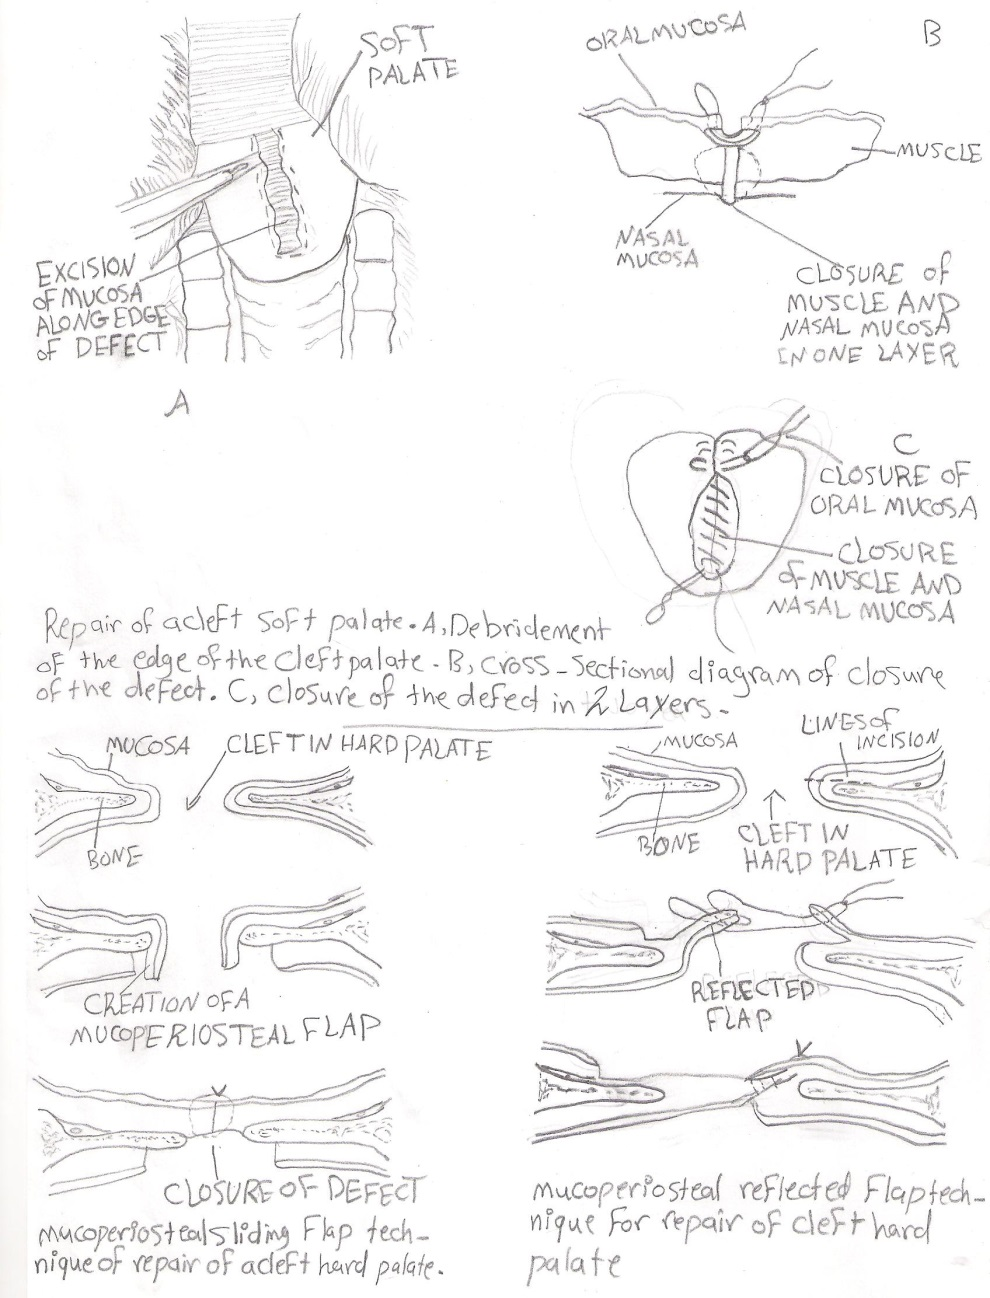 SOFT
PALATE
EXCISION
OF MUCOSA
ALONG EDGE
OF DEFECT
A
B
ORAL MUCOSA
MUSCLE
NASAL
MUCOSA
CLOSURE of
MUSCLE AND
NASAL MUCOSA
IN ONE LAYER
C
CLOSURE OF
ORAL MUCOSA
CLOSURE
of MUSCLE AND
NASAL MUCOSA
Repair of acleft soft palate. A, Debridement
of the edge of the cleft palate. B, cross-sectional diagram of closure
of the defect. C, closure of the defect in 2 Layers.
MUCOSA
CLEFT IN HARD PALATE
BONE
CREATION OF A
MUCOPERIOSTEAL FLAP
CLOSURE OF DEFECT
mucoperiosteal sliding Flap tech-
nique of repair of acleft hard palate.
MUCOSA
LINES of
INCISION
BONE
CLEFT IN
HARD PALATE
REFLECTED
FLAP
mucoperiosteal reflected Flap tech-
nique For repair of cleft hard
palate